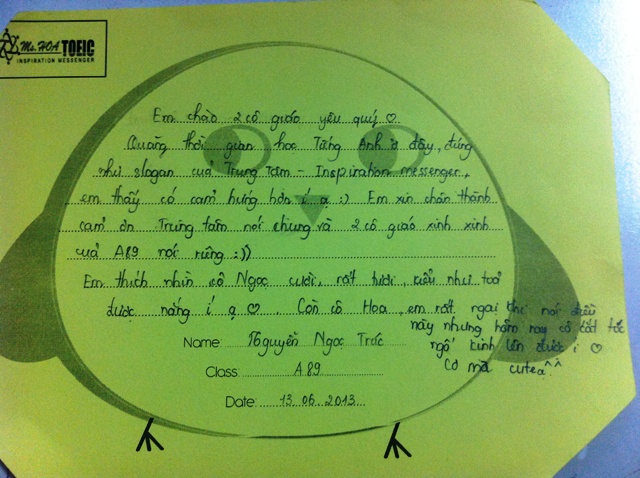 Ms. HOA TOEIC
INSPIRATION MESSENGER
Em chào 2 cô giáo yêu quý ♡
Quãng thời gian học Tiếng Anh ở đây, đúng
như slogan của Trung Tâm - Inspiration messenger,
em thấy có cảm hứng hơn í ạ :) Em xin chân thành
cảm ơn Trung tâm nói chung và 2 cô giáo xinh xinh
của A89 nói riêng :))
Em thích nhìn cô Ngọc cười, rất tươi, kiểu như toả
được nắng í ạ ♡. Còn cô Hoa, em rất ngại khi nói điều
này nhưng hôm nay cô cắt tóc
ngố kinh lên được í ♡
Cơ mà cute ạ ^^
Name: Nguyễn Ngọc Trúc
Class: A89
Date: 13.06.2013